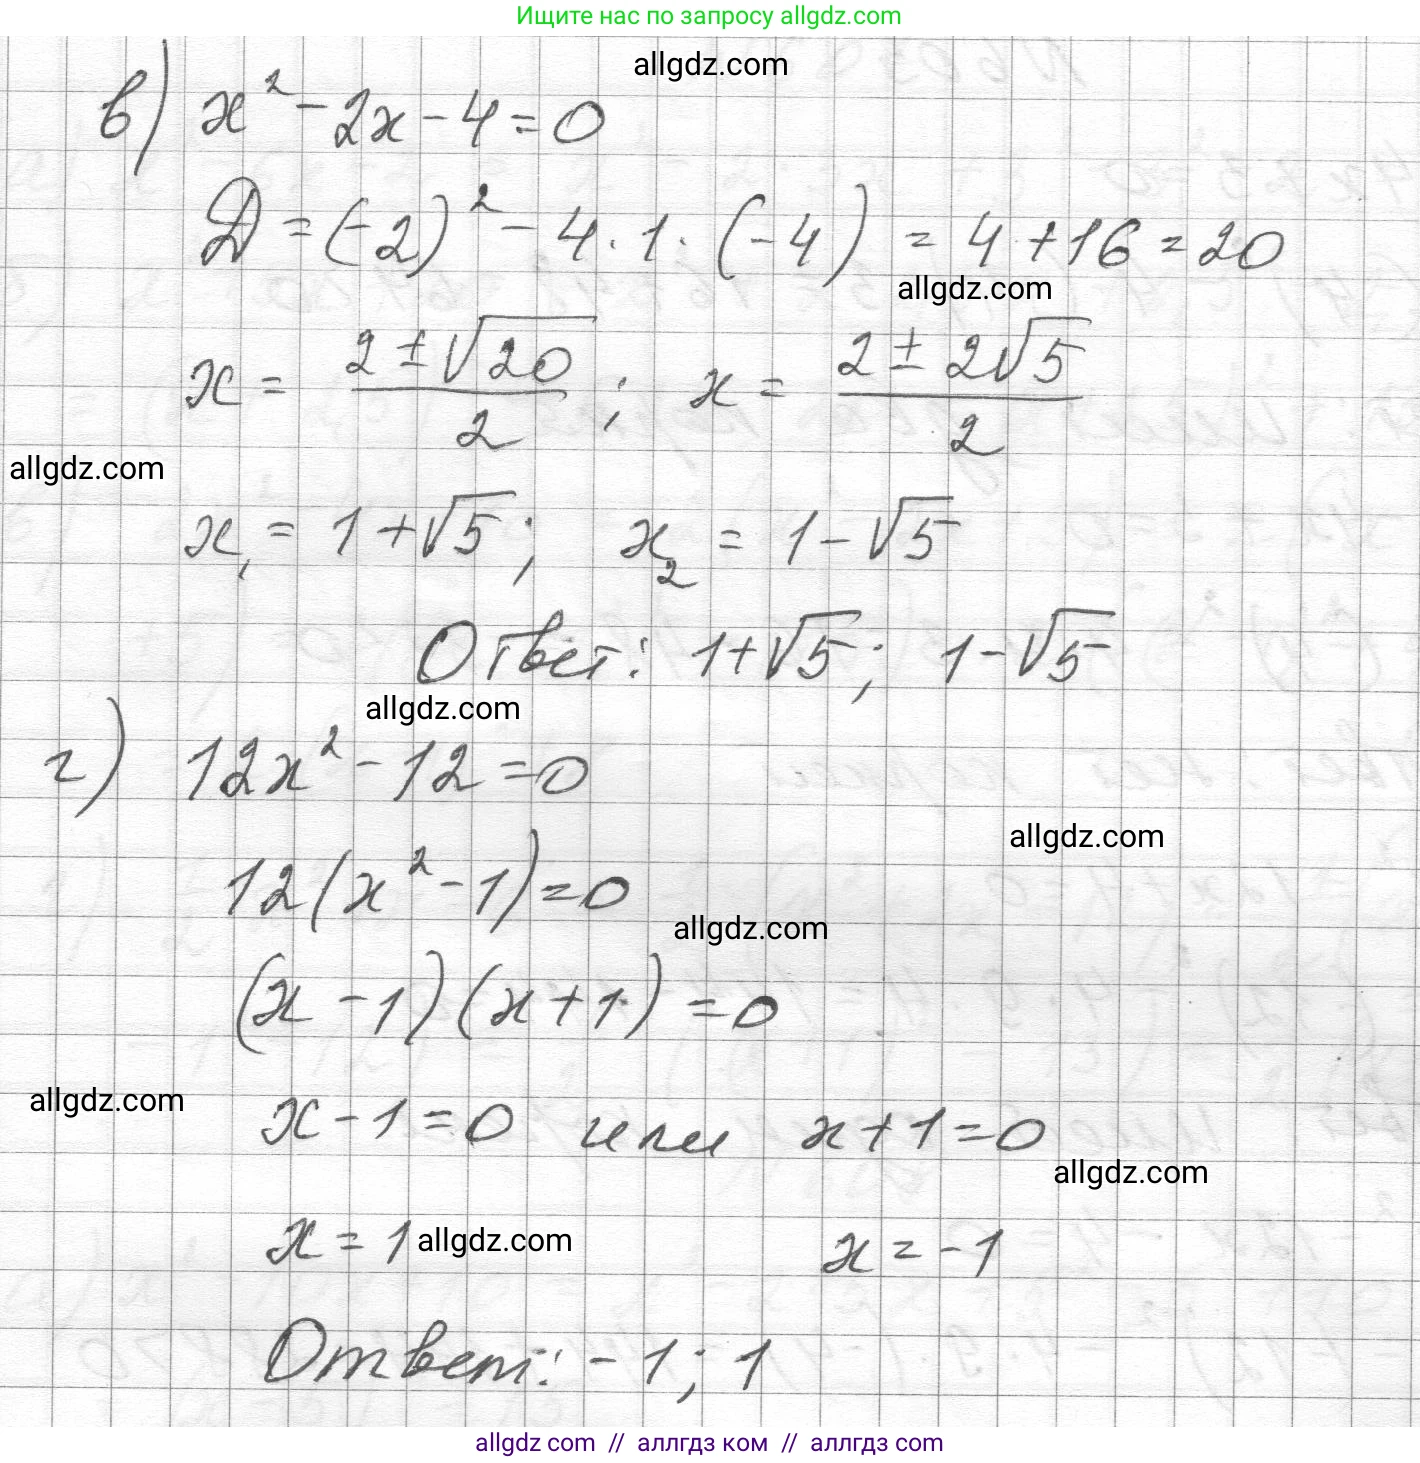 Ищите нас по запросу allgdz.com
allgdz.com
в) x² - 2x - 4 = 0
D = (-2)² - 4 · 1 · (-4) = 4 + 16 = 20
allgdz.com
x = (2 ± √20)/2 ; x = (2 ± 2√5)/2
allgdz.com
x₁ = 1 + √5 ; x₂ = 1 - √5
Ответ: 1 + √5 ; 1 - √5
allgdz.com
г) 12x² - 12 = 0
allgdz.com
12(x² - 1) = 0
allgdz.com
(x - 1)(x + 1) = 0
allgdz.com
x - 1 = 0 или x + 1 = 0
allgdz.com
x = 1 allgdz.com x = -1
Ответ: -1 ; 1
allgdz com // аллгдз ком // allgdz com